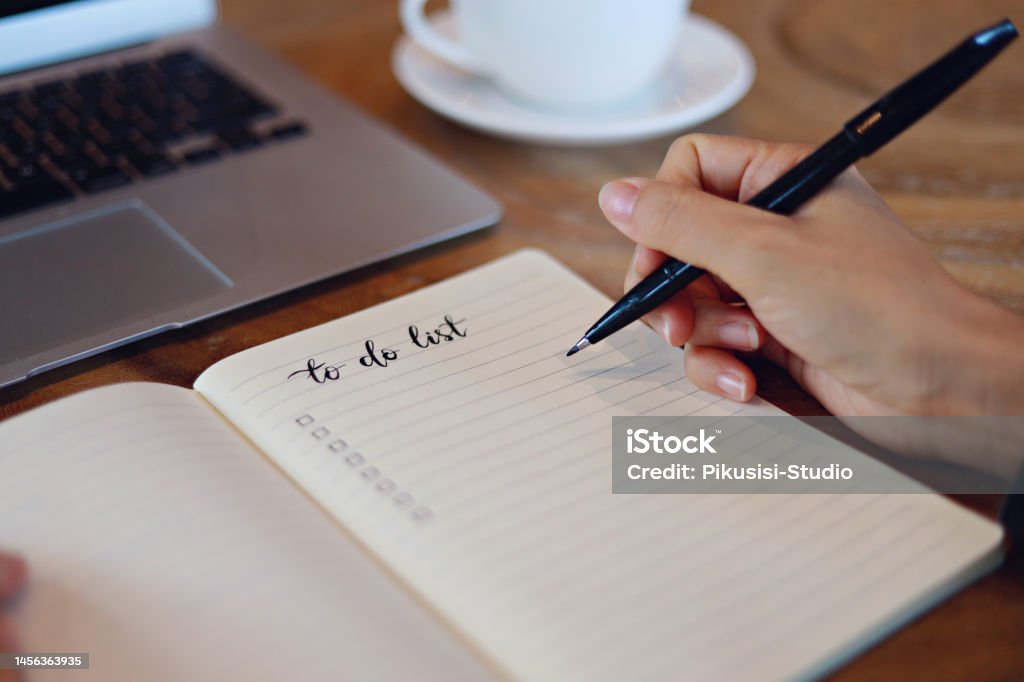 to do list
iStock™
Credit: Pikusisi-Studio
1456363935